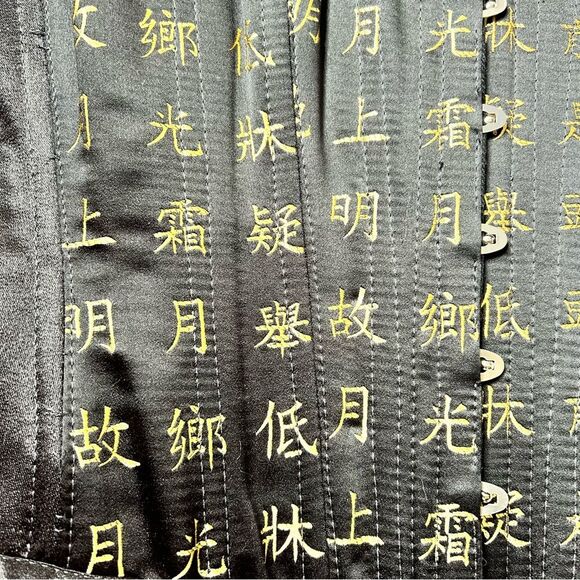 故鄉低月光牀
月光牀上霜疑是
上霜疑明月舉
明月舉故鄉低
故鄉低月光牀
月光牀上霜疑